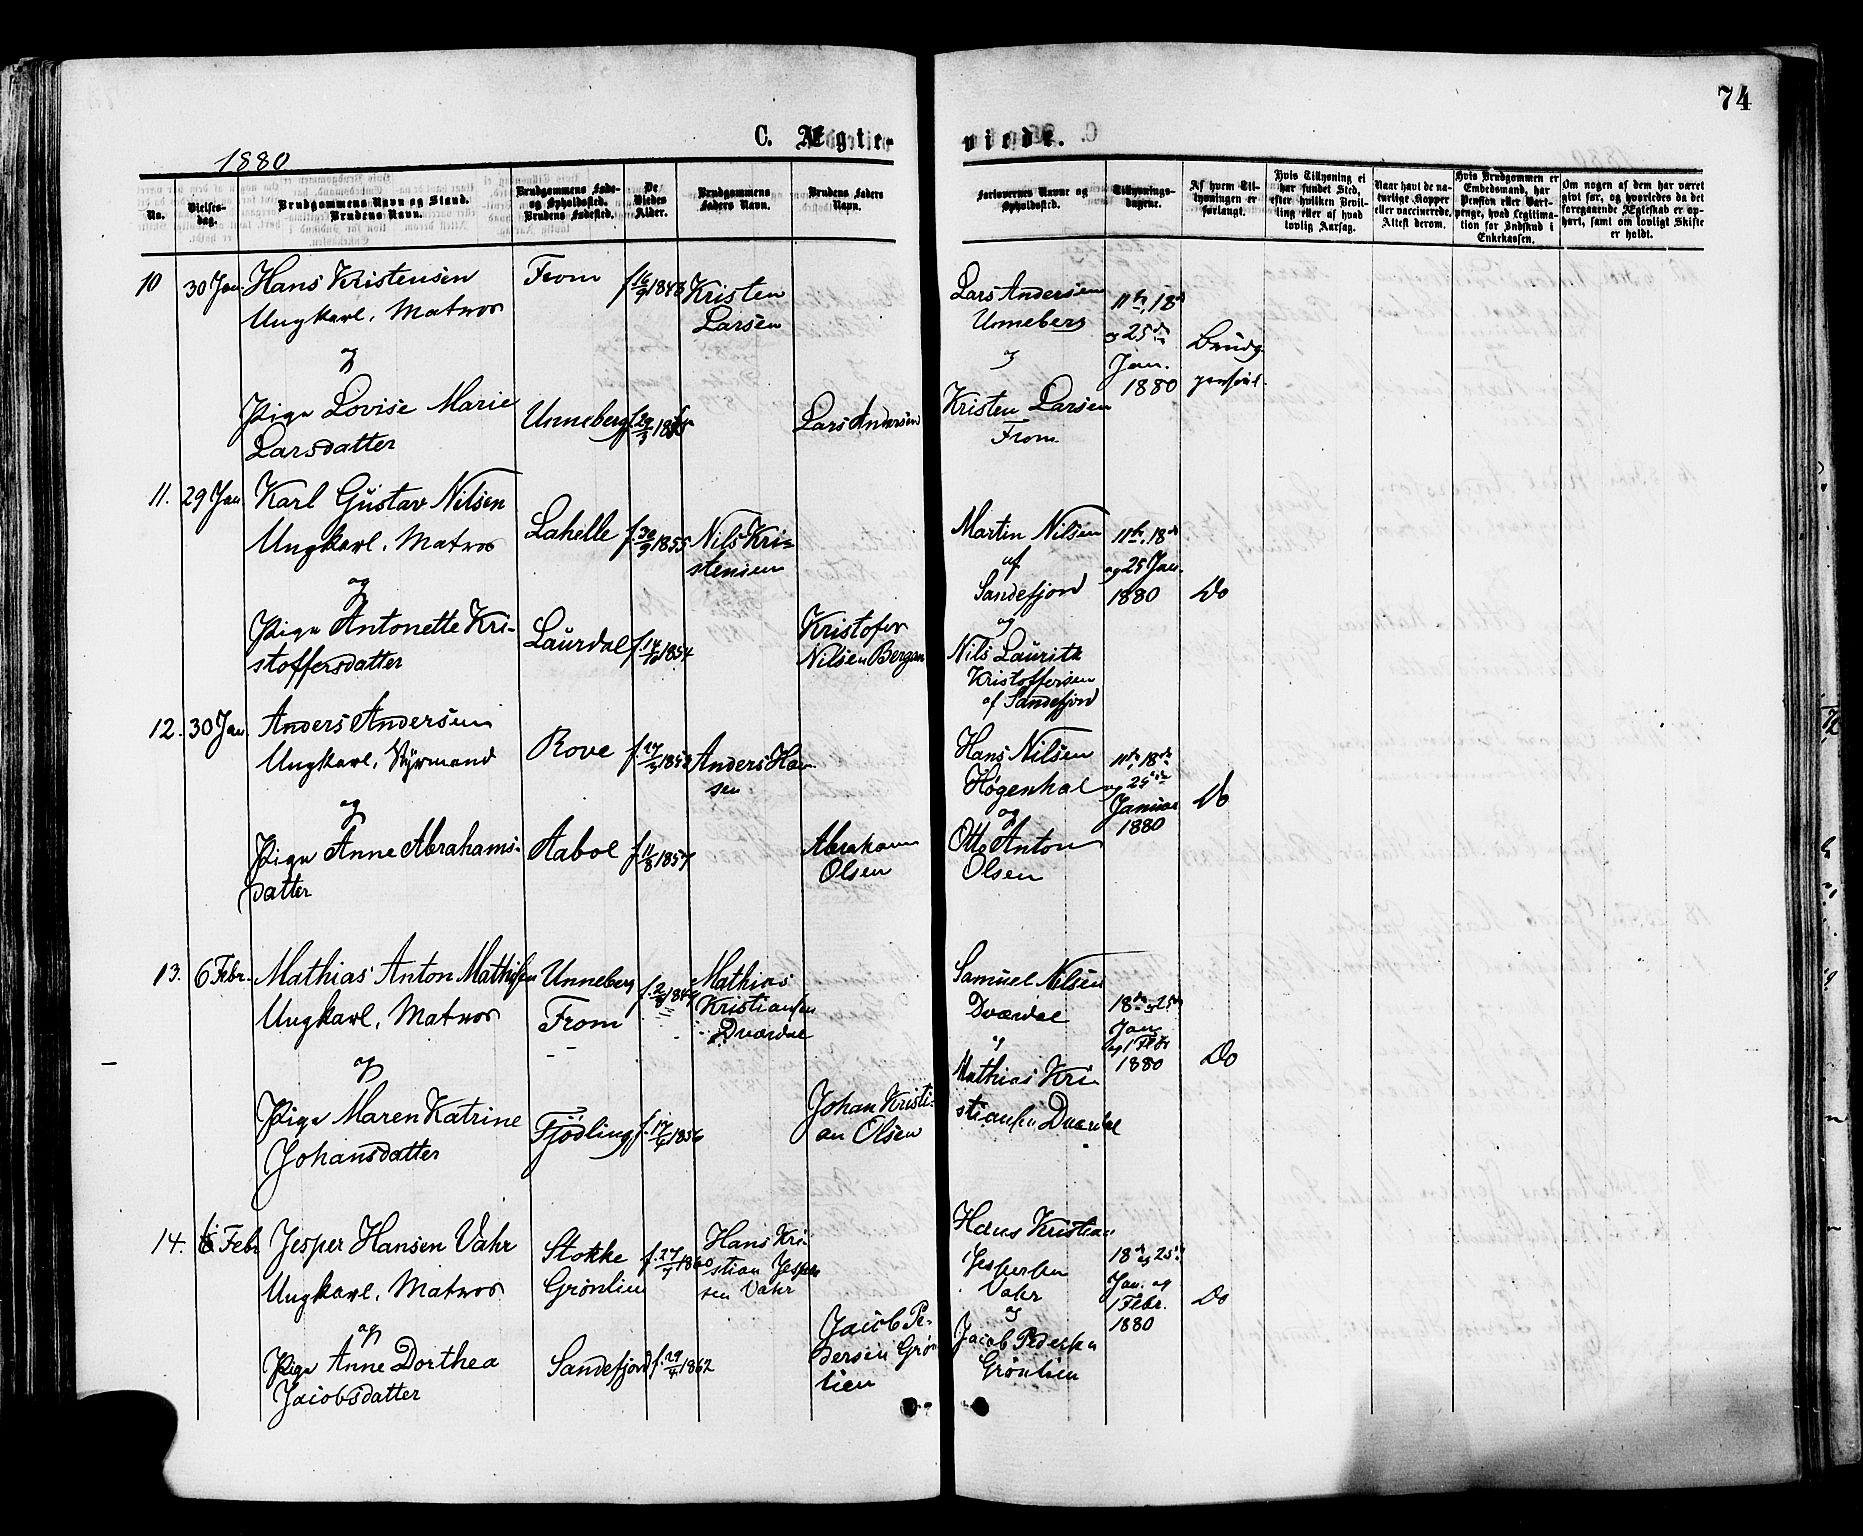 74
C. Ægte-
viede.
1880
No.
Vielses-
dag.
Brudgommens Navn og Stand.
Brudens Navn.
Brudgommens Føde-
og Opholdssted.
Brudens Fødested.
De
Viedes
Alder.
Brudgommens
Faders Navn.
Brudens Faders
Navn.
Forlovernes Navne og
Opholdssted.
Tillysnings-
dagene.
Af hvem Til-
lysningen er
forlangt.
Hvis Tillysning ei
har fundet Sted,
efter hvilken Bevil-
ling eller af hvad
lovlig Aarsag.
Naar havt de na-
turlige Kopper
eller vaccinerede.
Attest derom.
Hvis Brudgommen er
Embedsmand, har
Pension eller Vart-
penge, hvad Legitima-
tion for Indskud i
Enkekassen.
Om nogen af dem har været
givt før, og hvorledes da det
foregaaende Ægteskab er op-
hørt, samt om lovligt Skifte
er holdt.
10
30 Jan.
Hans Kristensen
Ungkarl, Matros
og
Pige Lovise Marie
Larsdatter
From
Unneberg
f. 16/9 1848
Kristen
Larsen
Lars Andersen
Lars Andersen
Unneberg
og
Kristen Larsen
From
11te, 18de
og 25de
Jan.
1880
Brudg.
11.
29 Jan
Karl Gustav Nilsen
Ungkarl, Matros
og
Pige Antonette Kri-
stoffersdatter
Lahelle
Laurdal
f. 30/9 1855
1854
Nils Kri-
stensen
Kristofer
Nilsen Bergan
Martin Nilsen
af
Sandefjord
og
Nils Lauritz
Kristoffersen
af Sandefjord
11te, 18de
og 25 Jan.
1880
Do
12.
30 Jan
Anders Andersen
Ungkarl, Styrmand
og
Pige Anne Abrahams-
datter
Rove
Aabol
f. 11/8 1857
Anders Han-
sen
Abraham
Olsen
Hans Nilsen
Høgenhal
og
Otto Anton
Olsen
11te, 18de
og 25de
Januar
1880
Do
13.
6 Febr.
Mathias Anton Mathisen
Ungkarl, Matros
og
Pige Maren Katrine
Johansdatter
Unneberg
From
Fjødling
f. 17/6 1856
Mathias
Kristiansen
Dværdal
Johan Kristi-
an Olsen
Samuel Nilsen
Dværdal
og
Mathias Kri
stiansen Dværdal
18de og 25de
Jan.
og 1 Febr
1880
Do
14.
6 Febr
Jesper Hansen Vahr
Ungkarl, Matros
og
Pige Anne Dorthea
Jacobsdatter
Stokke
Grønlien
Sandefjord
f. 27/7 1860
f. 29/4 1862
Hans Kri-
stian Jesper
sen Vahr
Jacob Pe-
dersen Grøn
lien
Hans Kristian
Jespersen
Vahr
og
Jacob Pedersen
Grønlien
18de og 25de
Jan. og
1 Febr.
1880
Do